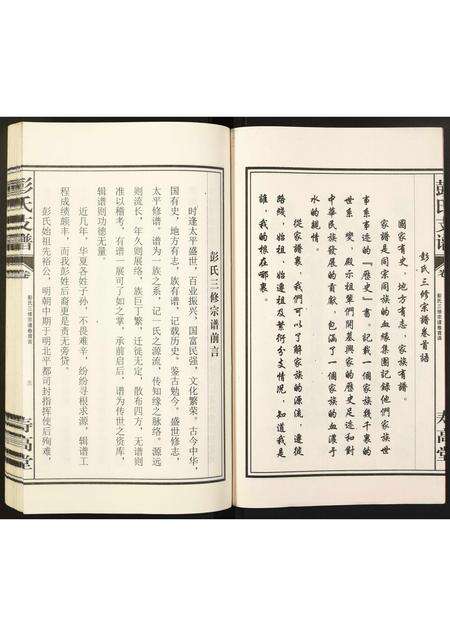 彭氏支谱
卷
寿高堂
彭氏三修宗谱卷首语
国家有史，地方有志，家族有谱。
家谱是同宗同族的血缘集团记录他们家族世
事系事迹的『历史』书。记载一个家族几千里的
世系，变，殿示祖辈们开基兴家的历史足迹和对
中华民族发展的贡献，包涵了一个家族的血浓于
水的亲情。
从家谱里，我们可以了解家族的源流，迁徙
路线，始祖，始迁祖及繁衍分支情况，知道我是
谁，我的根在哪里。
彭氏三修宗谱前言
时逢太平盛世，百业振兴，国富民强，文化繁荣。古今中华，
国有史，地方有志，族有谱，记载历史，鉴古勉今，盛世修志，
太平修谱。谱为一族之系，记一氏之源流，传知缘之脉络。源远
则流长，年久则展络，族巨丁繁，迁徙无定，散布四方，无谱则
准以稽考，有谱一展可了如之掌，承前启后，谱为传世之资库，
辑谱则功德无量。
近几年，华夏各姓子孙，不畏难辛，纷纷寻根求源，辑谱工
程成绩颇丰，而我彭姓后裔更是责无旁贷。
彭氏始祖先裕公，明朝中期于明北平都司封指挥使后殉难，
彭氏支谱
卷
寿高堂